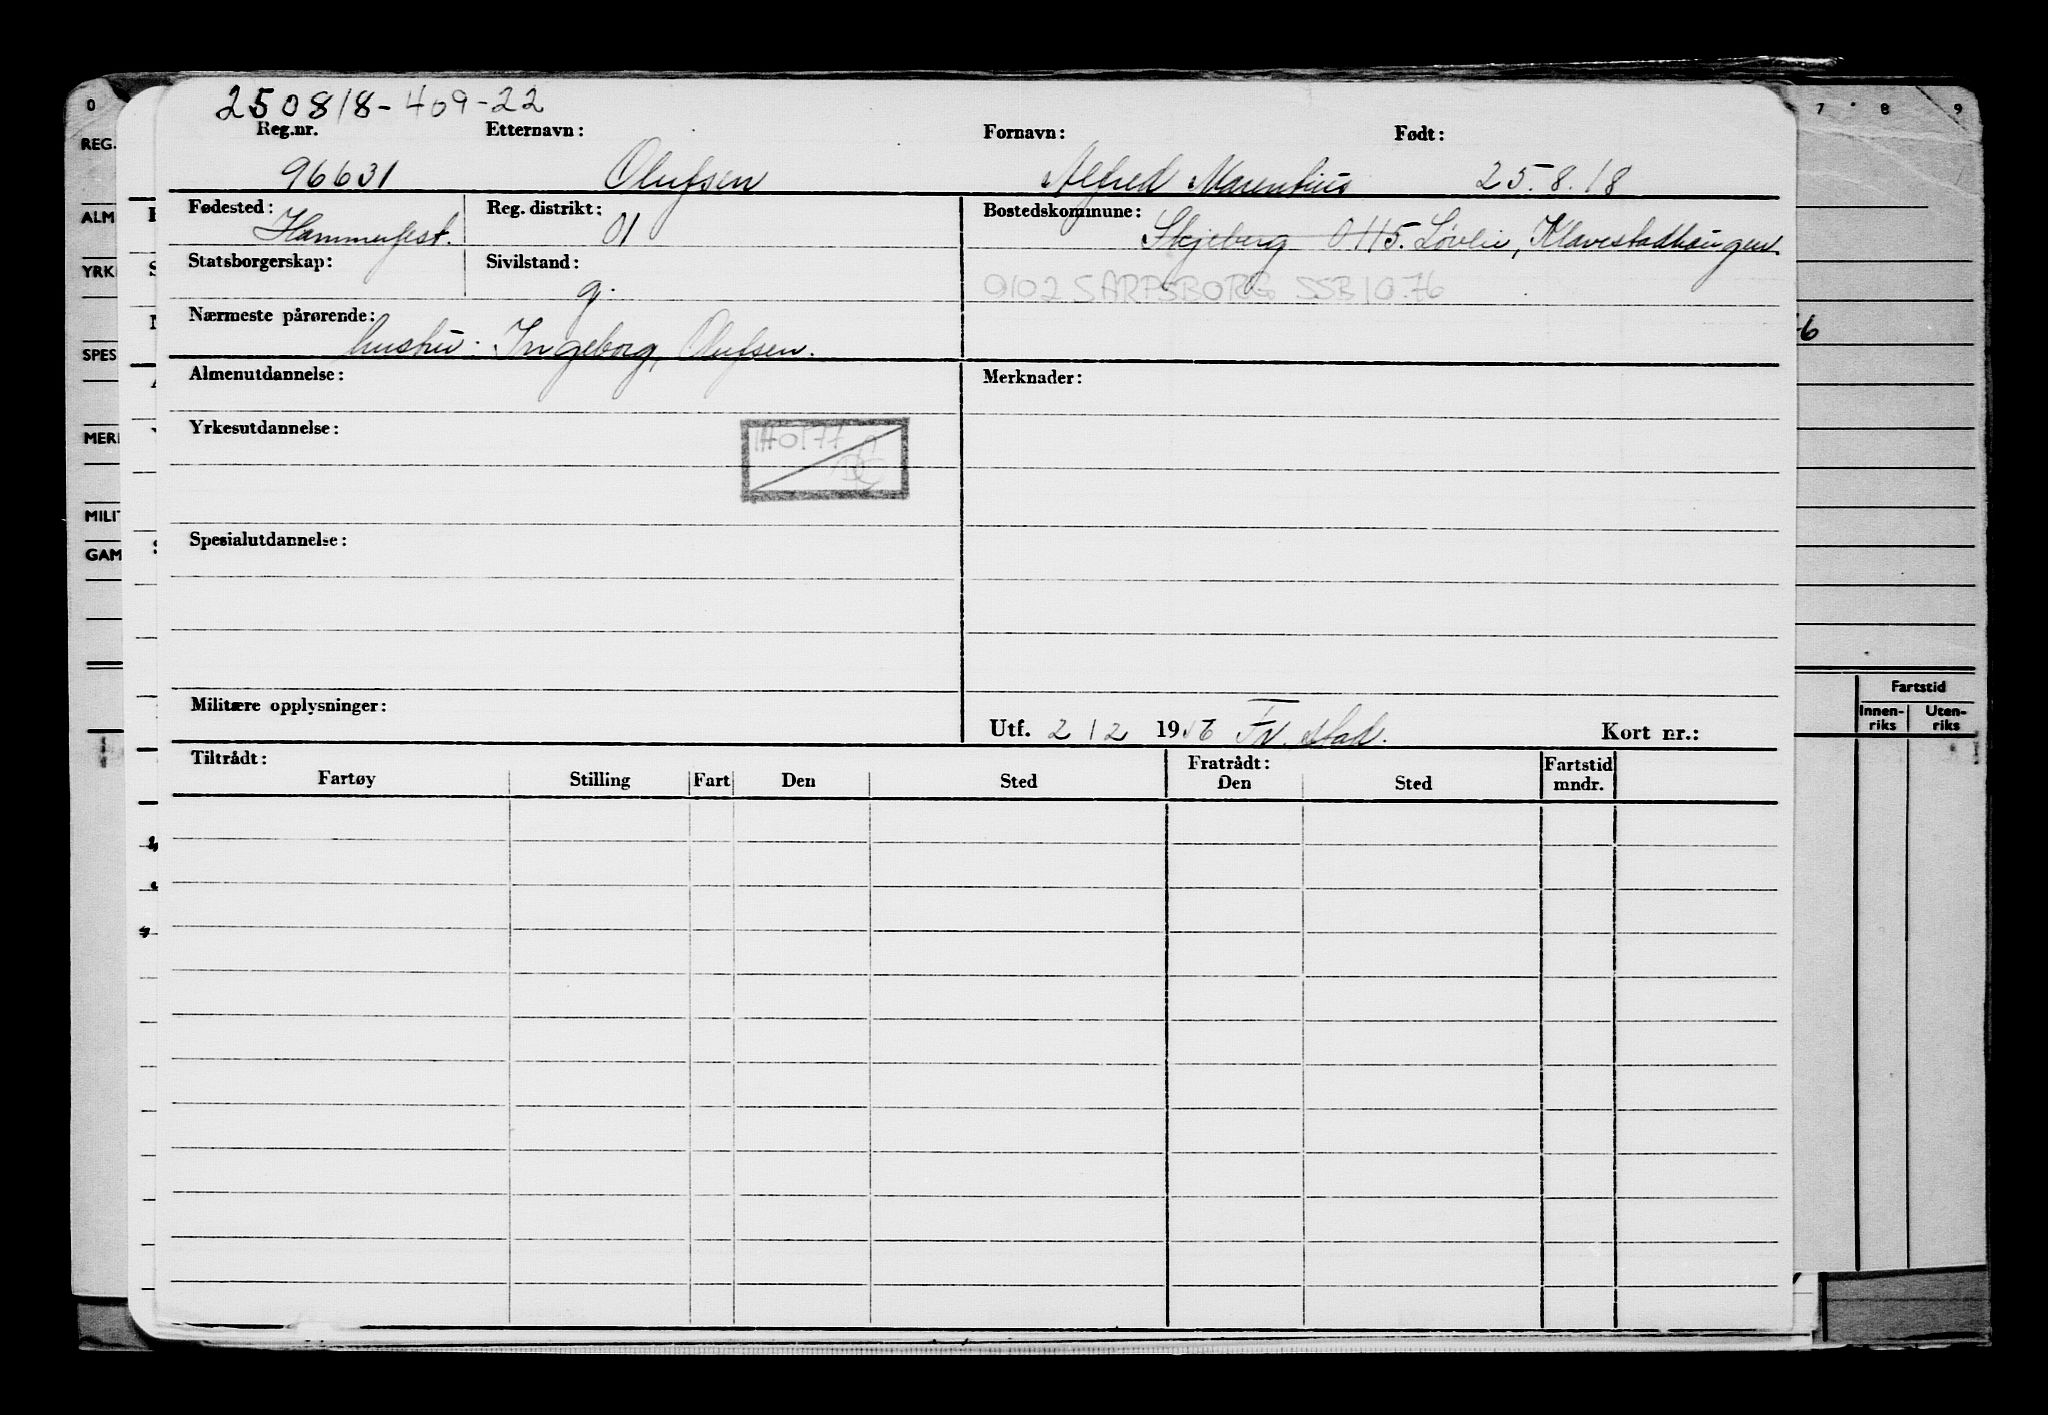 0 7 8 9
250818-409-22
REG. Reg.nr. Etternavn: Fornavn: Født:
96631 Olufsen Alfred Marentius 25.8.18
ALM Fødested: Reg. distrikt: Bostedskommune:
Hammerfest. 01 Skjeberg 0115. Løvlie, Klavestadhaugen
YRK Statsborgerskap: Sivilstand:
g. 0102 SARPSBORG SSB 10.76
Nærmeste pårørende:
hustru: Ingeborg Olufsen.
SPES Almenutdannelse: Merknader:
MER Yrkesutdannelse:
MILIT Spesialutdannelse:
GAM
Fartstid
Militære opplysninger: Innen-riks Uten-riks
Utf. 2/2 1956 Fr.stad. Kort nr.:
Tiltrådt: Fratrådt: Fartstid
Fartøy Stilling Fart Den Sted Den Sted mndr.